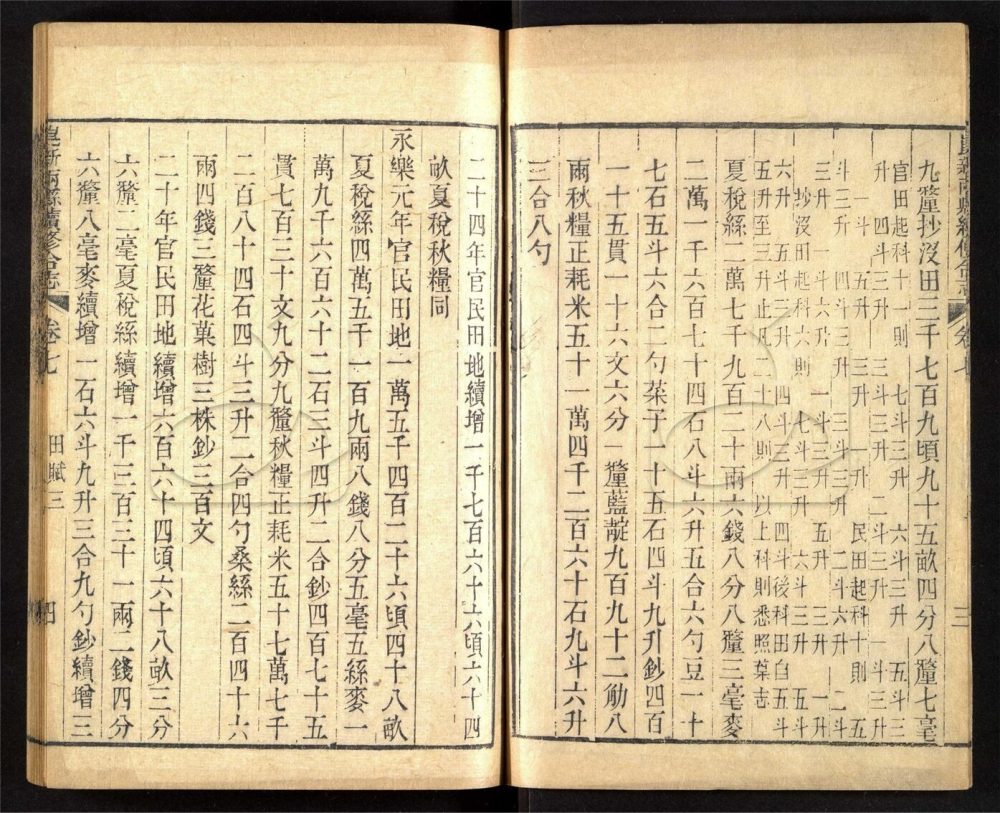 昆新兩縣續修合志 卷七 三
九釐抄沒田三千七百九頃九十五畝四分八釐七毫
官田起科十一則 七斗三升 六斗三升 五斗三
升 四斗三升 三斗三升 二斗三升 一斗三升
一斗 五升 三升 一升 民田起科十則 五
斗三升 四斗三升 三斗三升 二斗六升 二斗
三升 一斗六升 一斗三升 五升 三升 一升
抄沒田起科六則 七斗三升 六斗三升 五斗
六升 五斗三升 四斗三升 四斗後科田自五斗
五升至三升止凡二十八則 以上科則悉照葉志
夏稅絲二萬七千九百二十兩六錢八分八釐三毫麥
二萬一千六百七十四石八斗六升五合六勺豆一十
七石五斗六合二勺菜子一十五石四斗九升鈔四百
一十五貫一十六文六分一釐藍靛九百九十二觔八
兩秋糧正耗米五十一萬四千二百六十石九斗六升
三合八勺
二十四年官民田地續增一千七百六十六頃六十四
畝夏稅秋糧同
永樂元年官民田地一萬五千四百二十六頃四十八畝
夏稅絲四萬五千一百九兩八錢八分五毫五絲麥一
萬九千六百六十二石三斗四升二合鈔四百七十五
貫七百三十文九分九釐秋糧正耗米五十七萬七千
二百八十四石四斗三升二合四勺桑絲二百四十六
兩四錢三釐花菓樹三株鈔三百文
二十年官民田地續增六百六十四頃六十八畝三分
六釐二毫夏稅絲續增一千三百三十一兩二錢四分
六釐八毫麥續增一石六斗九升三合九勺鈔續增三
昆新兩縣續修合志 卷七 田賦三 四